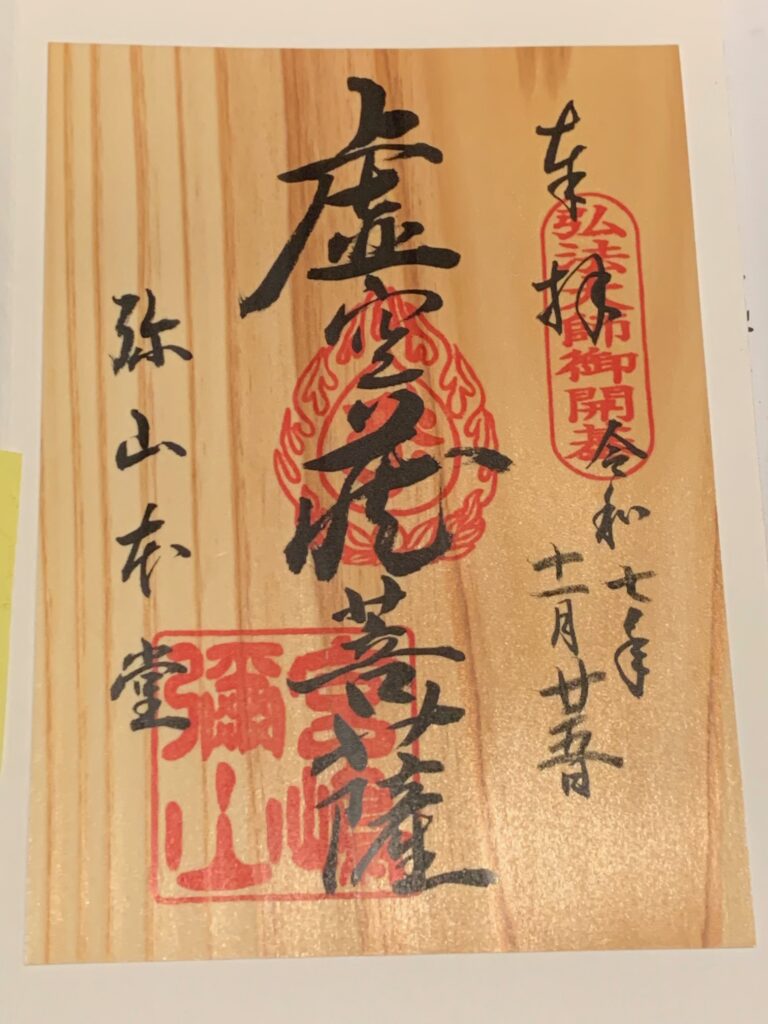 奉拝
弘法大師御開基
令和七年
十一月廿五日
虚空蔵菩薩
弥山本堂
宮嶋
彌山